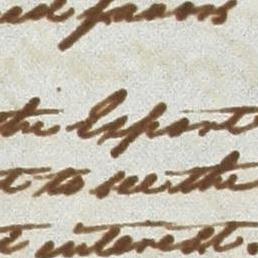 ed favors
the Export
t to see the
t interest.